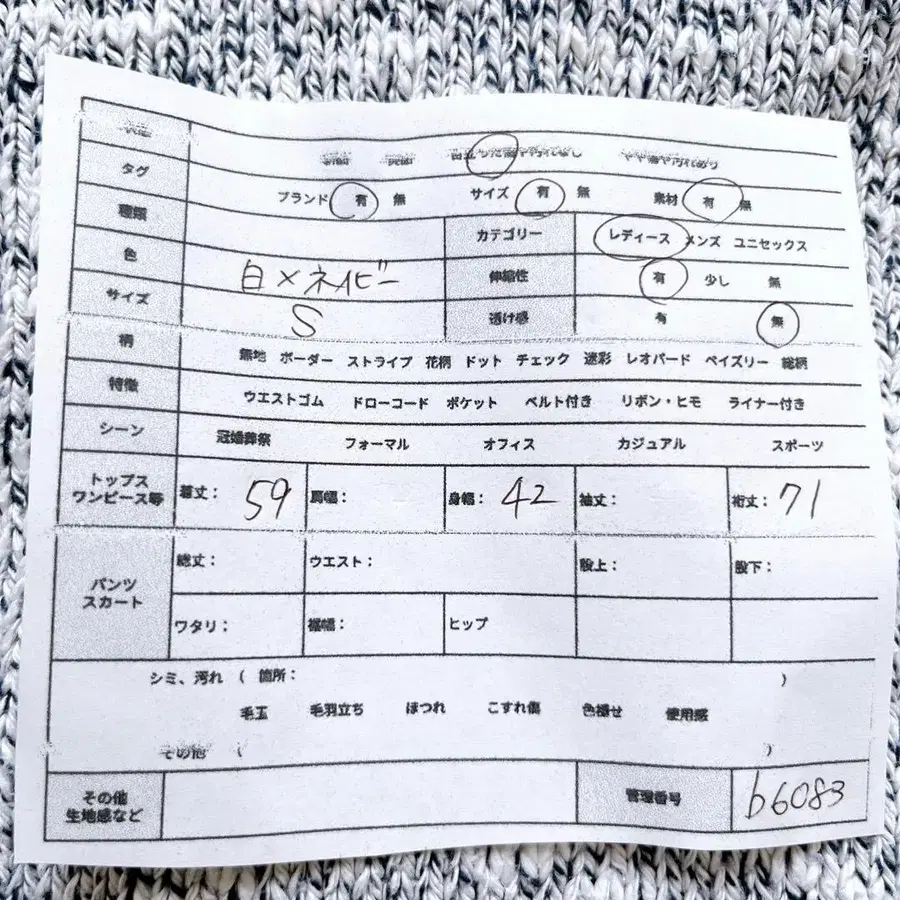 状態 目立った傷や汚れなし やや傷や汚れあり
タグ ブランド 有 無 サイズ 有 無 素材 有 無
種類 カテゴリー レディース メンズ ユニセックス
色 白×ネイビー 伸縮性 有 少し 無
サイズ S 透け感 有 無
柄 無地 ボーダー ストライプ 花柄 ドット チェック 迷彩 レオパード ペイズリー 総柄
特徴 ウエストゴム ドローコード ポケット ベルト付き リボン・ヒモ ライナー付き
シーン 冠婚葬祭 フォーマル オフィス カジュアル スポーツ
トップス
ワンピース等 着丈: 59 肩幅: 身幅: 42 袖丈: 裄丈: 71
総丈: ウエスト: 股上: 股下:
パンツ
スカート
ワタリ: 裾幅: ヒップ
シミ、汚れ ( 箇所: )
毛玉 毛羽立ち ほつれ こすれ傷 色褪せ 使用感
その他 ( )
その他
生地感など 管理番号 b6083